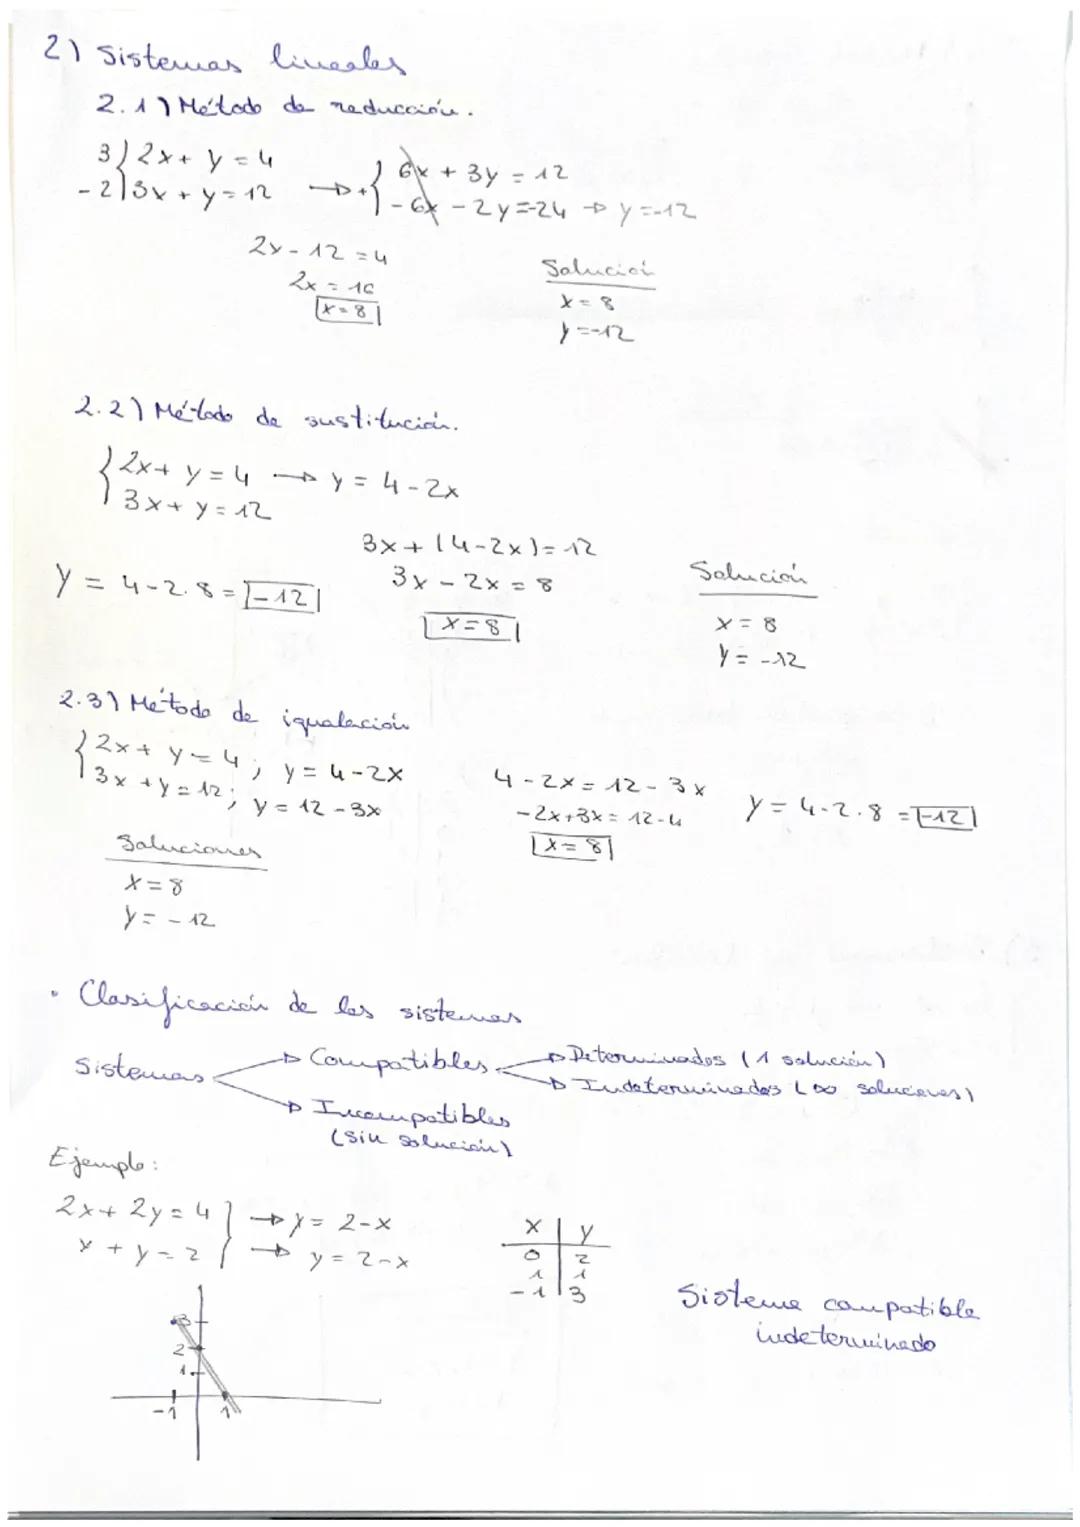 2) Sistemas lineales
2.1) Método de reducción.
3 { 2x + y = 4
-2 { 3x + y = 12 → + { 6x + 3y = 12
- 6x - 2y = -24 → y = -12
2x - 12 = 4
2x = 16
x = 8
Solución
x = 8
y = -12
2.2) Método de sustitución.
{ 2x + y = 4 → y = 4 - 2x
3x + y = 12
3x + (4 - 2x) = 12
3x - 2x = 8
x = 8
y = 4 - 2 . 8 = -12
Solución
x = 8
y = -12
2.3) Método de igualación
{ 2x + y = 4 ; y = 4 - 2x
3x + y = 12 ; y = 12 - 3x
4 - 2x = 12 - 3x
-2x + 3x = 12 - 4
x = 8
y = 4 - 2 . 8 = -12
Soluciones
x = 8
y = -12
• Clasificación de los sistemas
Sistemas → Compatibles → Determinados (1 solución)
→ Indeterminados (∞ soluciones)
→ Incompatibles
(sin solución)
Ejemplo:
2x + 2y = 4 } → y = 2 - x
x + y = 2 } → y = 2 - x
x | y
0 | 2
1 | 1
-1 | 3
Sistema compatible
indeterminado
3
2
1
-1 1